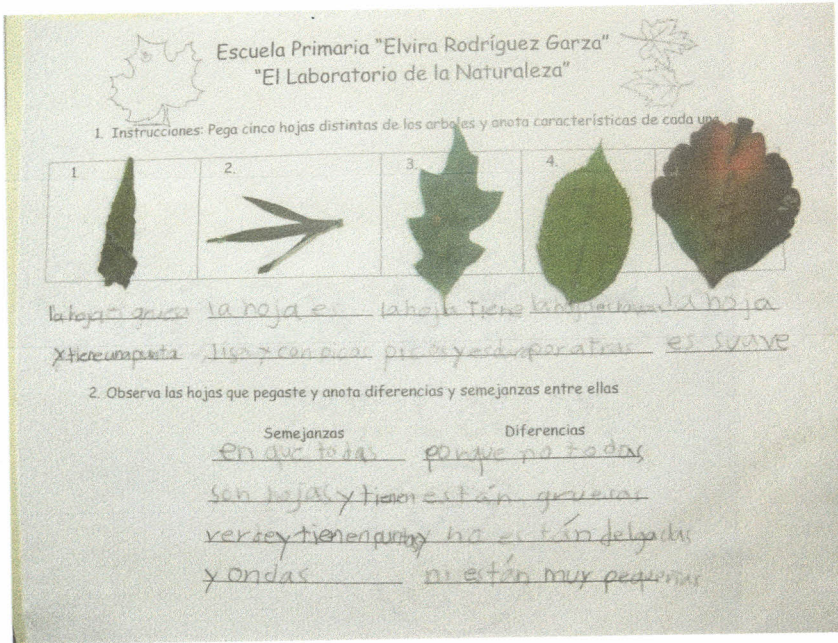 Escuela Primaria "Elvira Rodríguez Garza"
"El Laboratorio de la Naturaleza"
1. Instrucciones: Pega cinco hojas distintas de los arboles y anota características de cada una
1
2.
3.
4.
la hoja es gruesa
y tiene una punta
la hoja es
lisa y con picos
la hoja Tiene
picos y es por atras
la hoja
la hoja
es suave
2. Observa las hojas que pegaste y anota diferencias y semejanzas entre ellas
Semejanzas
en que todas
son hojas y tienen
verde y tienen puntas
y ondas
Diferencias
porque no todas
están gruesas
y no están delgadas
ni están muy pequeñas